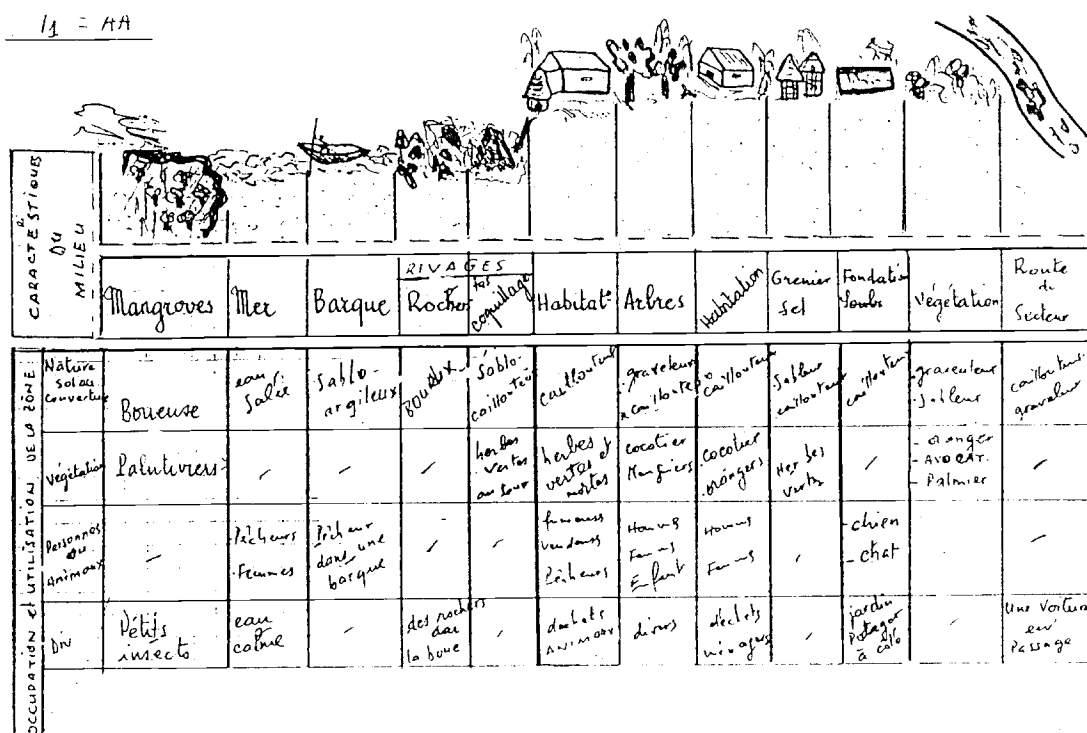 I1 = AA
CARACTÉSTIQUES
DU
MILIEU
RIVAGES
Mangroves
Mer
Barque
Rocher
coquillage
Habitat°
Arbres
Habitation
Grenier
Sel
Fondation
Végétation
Route
du
Secteur
OCCUPATION et UTILISATION DE LA ZÔNE
Nature
Sol ou
couverture
Boueuse
eau
Salée
Sablo-
argileux
Boueux
Sablo-
caillouteux
caillouteux
graveleux
caillouteux
caillouteux
Sableux
caillouteux
caillouteux
- graveleux
- Sableux
caillouteux
graveleux
Végétation
Palutiviers
/
/
/
herbes
vertes
herbes
vertes et
mortes
cocotier
Manguiers
cocotier
orangers
Herbes
vertes
/
- oranger
- AVOCAT.
- Palmier
/
Personnes
ou
Animaux
/
Pêcheurs
Femmes
Pêcheur
dans une
barque
/
/
vendeuses
Pêcheurs
Hommes
Femmes
Enfant
Hommes
Femmes
/
- chien
- chat
/
Div
Pétits
insects
eau
calme
/
des rochers
dans
la boue
/
déchets
ANIMAUX
divers
déchets
ménagers
/
jardin
Potager
à côté
/
Une voiture
en
Passage